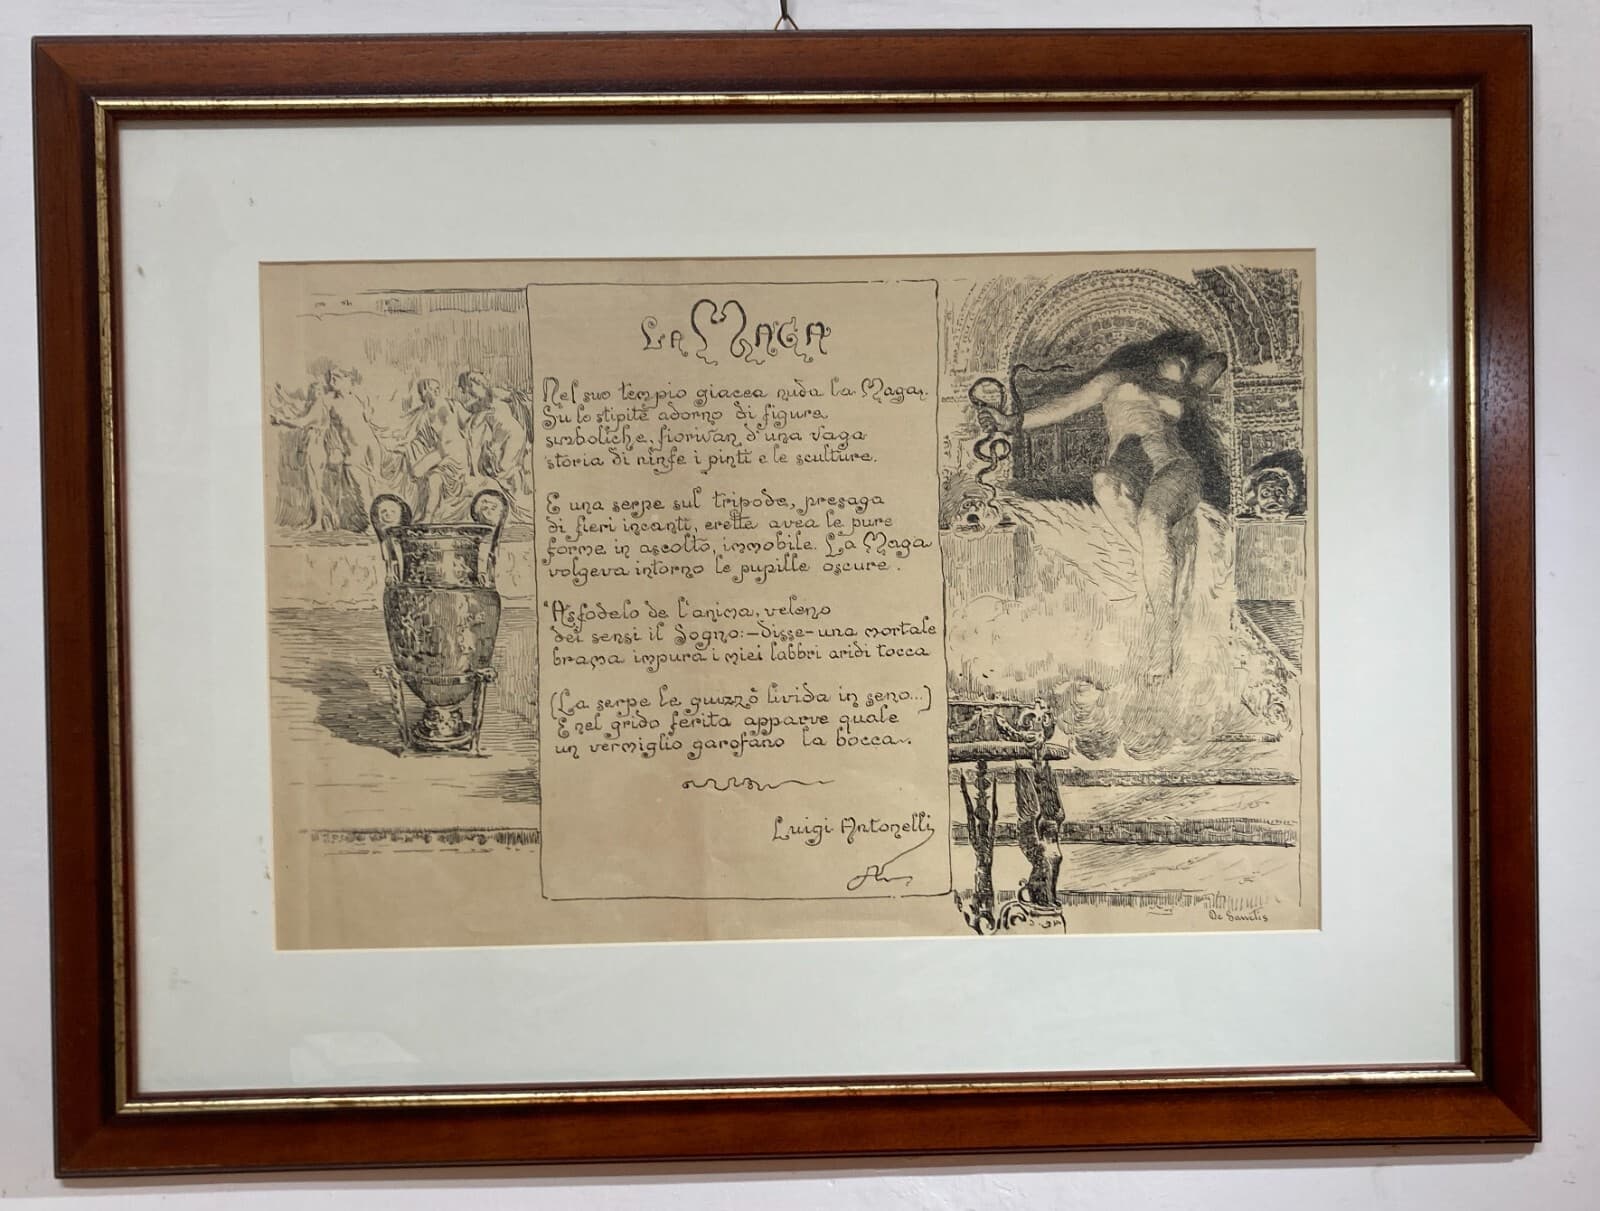 La Maga
Nel suo tempio giacea nuda la Maga.
Su lo stipite adorno di figure
simboliche, fiorivan d'una vaga
storia di ninfe i pinti e le sculture.
E una serpe sul tripode, presaga
di fieri incanti, eretta avea le pure
forme in ascolto, immobile. La Maga
volgeva intorno le pupille oscure.
"Asfodelo de l'anima, veleno
dei sensi il Sogno: – disse – una mortale
brama impura i miei labbri aridi tocca
(La serpe le guizzò livida in seno...)
E nel grido ferita apparve quale
un vermiglio garofano la bocca.
Luigi Antonelli
De Sanctis